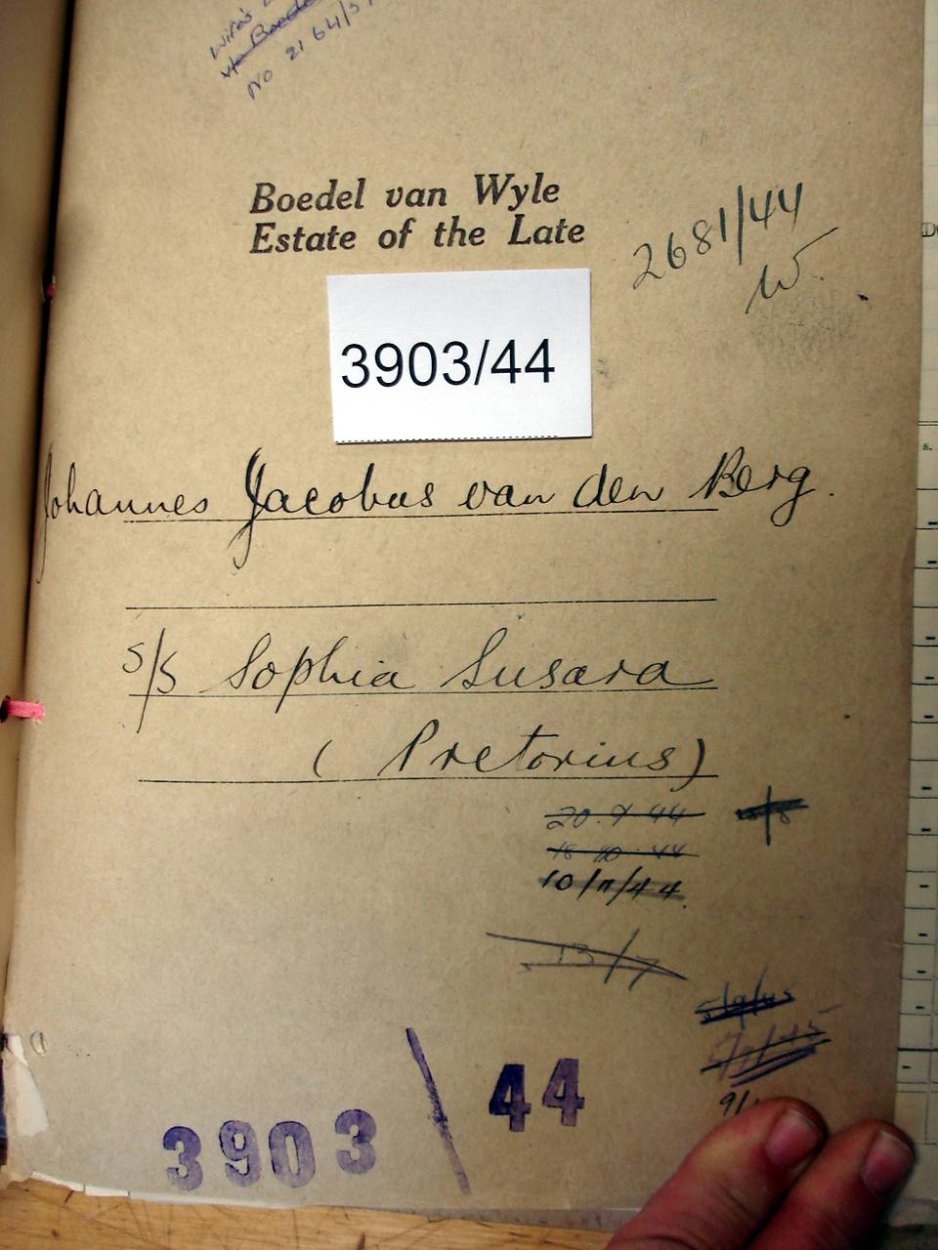 Wife's
Boedel
No 2164/5
Boedel van Wyle
Estate of the Late
2681/44
W.
3903/44
Johannes Jacobus van den Berg.
s/s Sophia Susara
(Pretorius)
20.9 44
18 10 44
10/11/44.
13/7
5/9/45
9/
3903/44